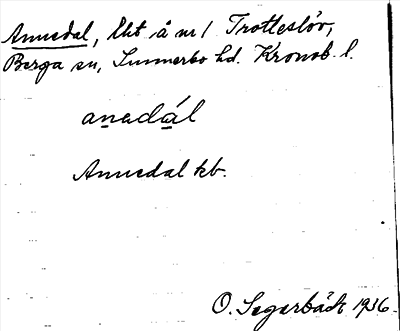 Annedal, lht å nr 1 Trotteslöv,
Berga sn, Sunnerbo hd. Kronob. l.
anadál
Annedal kb.
O. Segerbäck 1936.